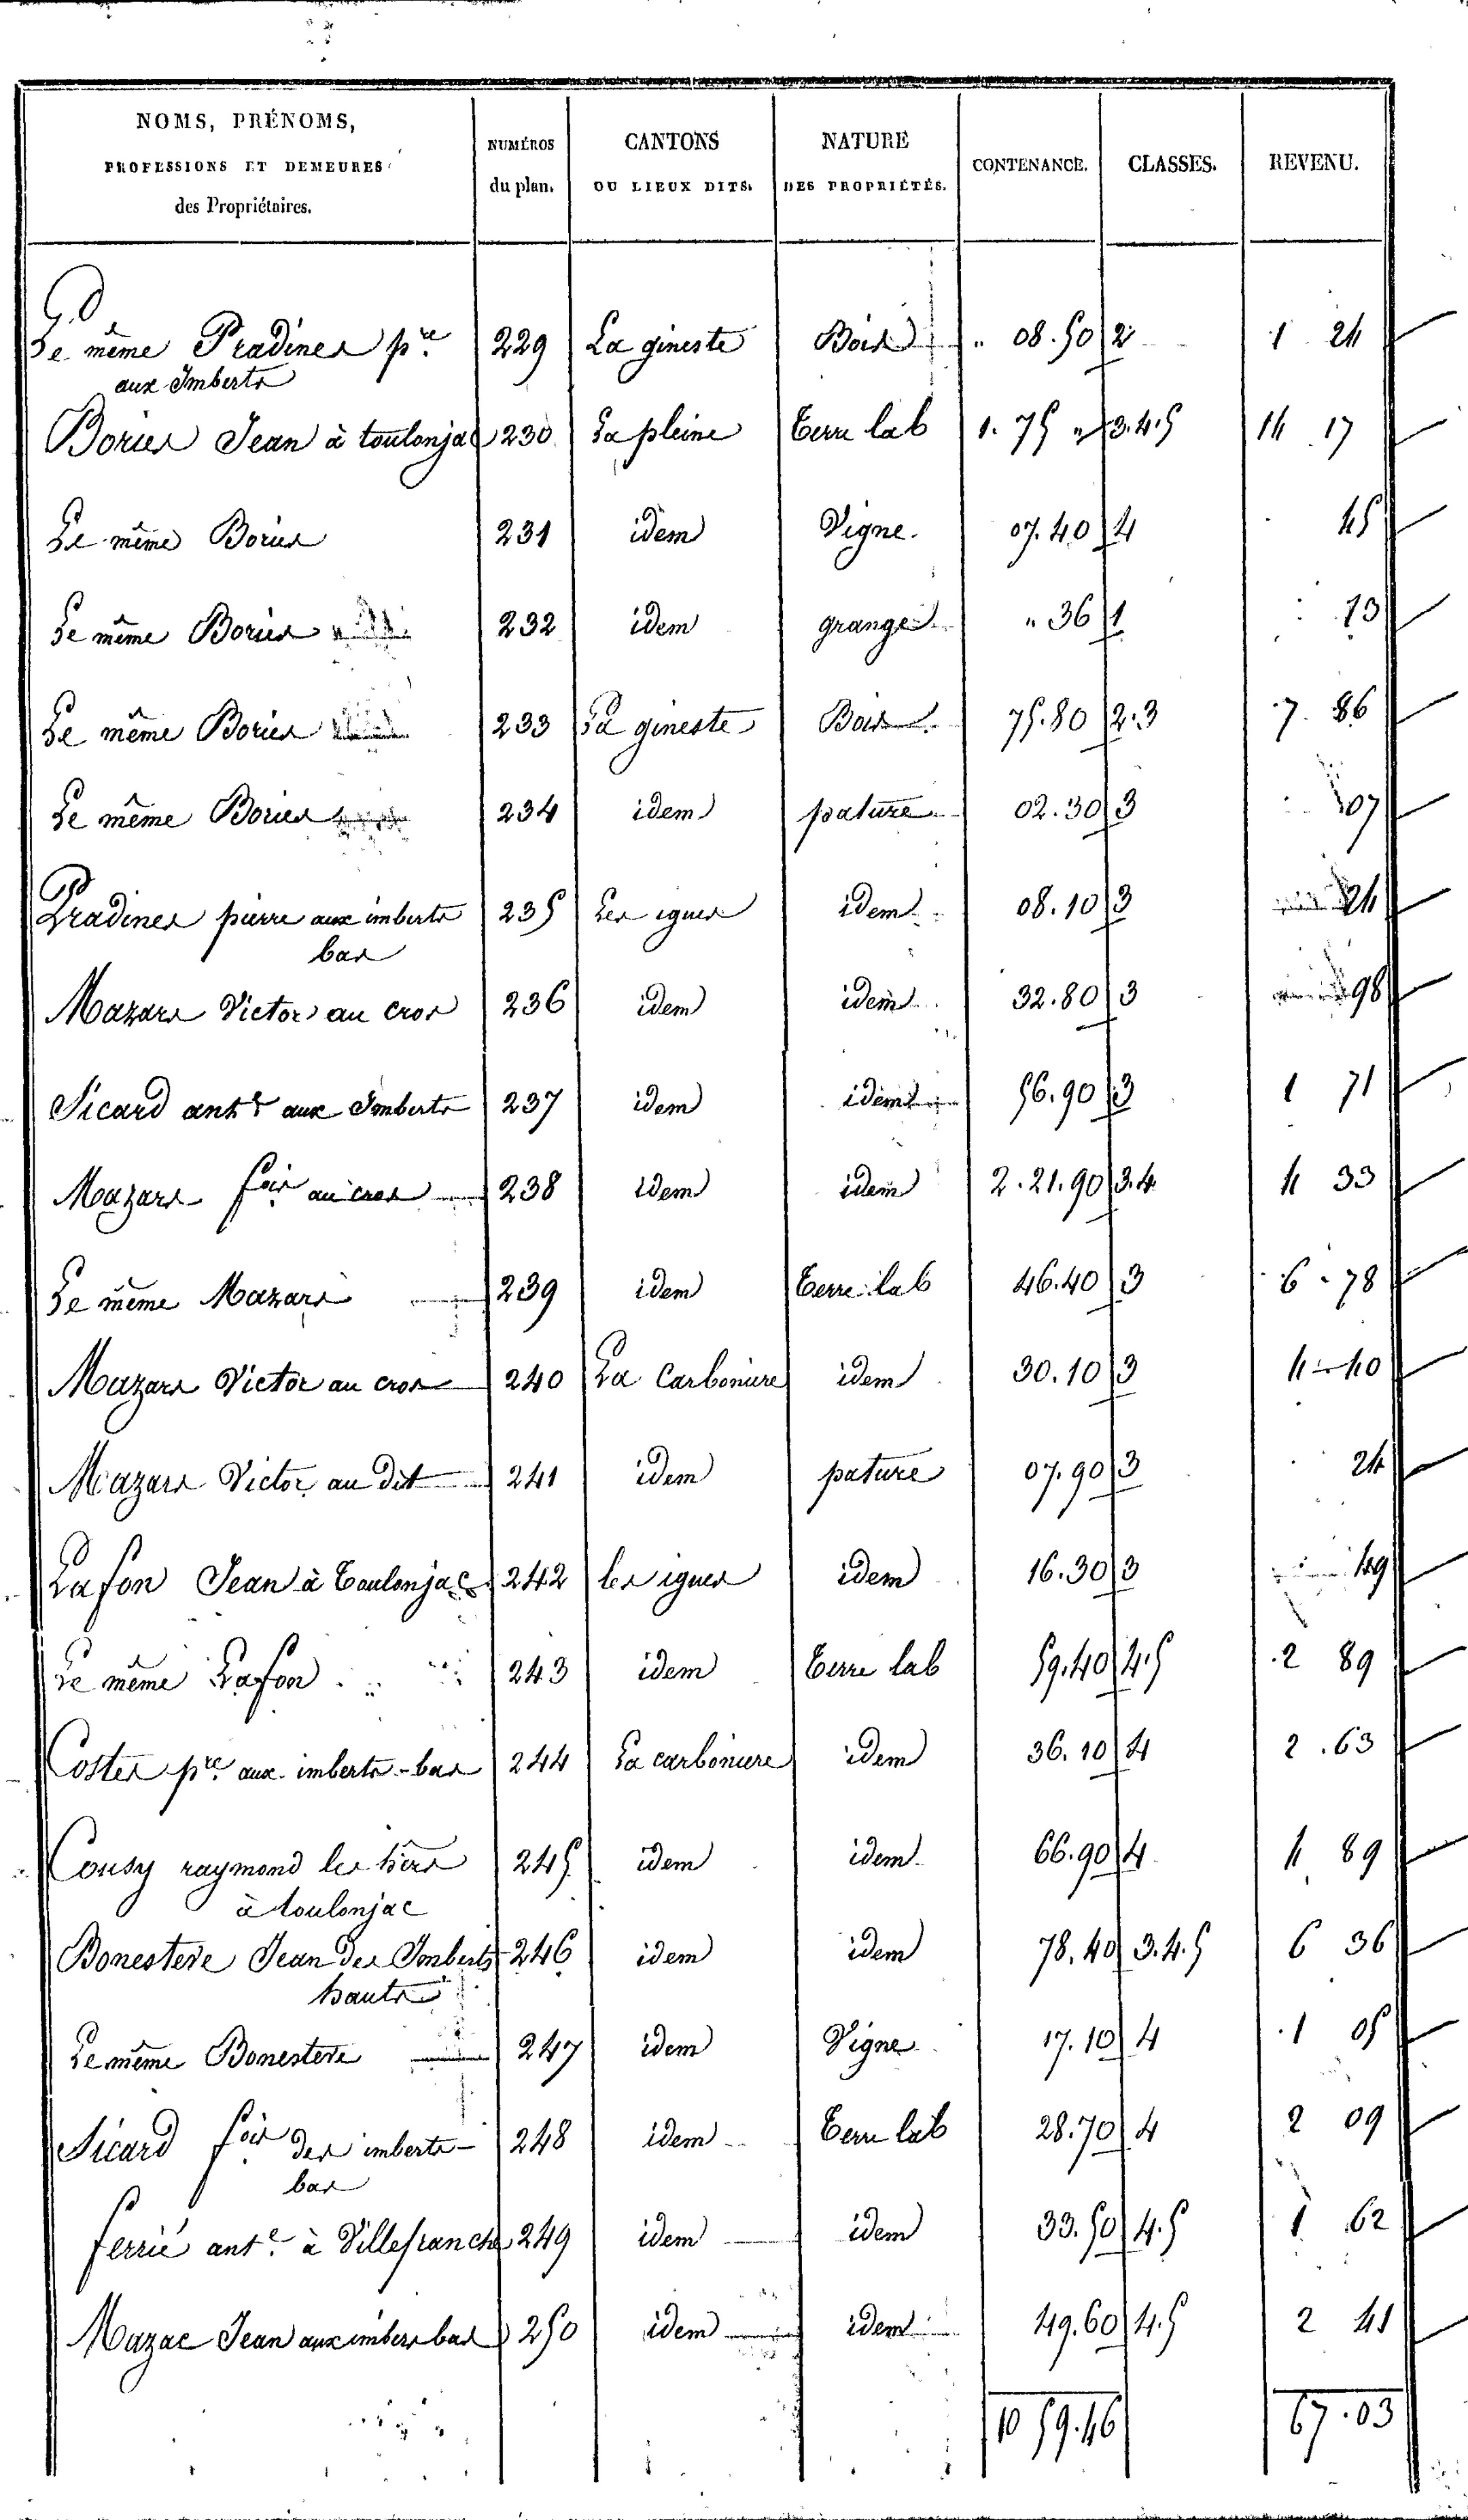 NOMS, PRÉNOMS,
PROFESSIONS ET DEMEURES
des Propriétaires.
NUMÉROS
du plan.
CANTONS
OU LIEUX DITS.
NATURE
DES PROPRIÉTÉS.
CONTENANCE.
CLASSES.
REVENU.
Le même Pradines pre 229 La gineste Bois " 08.50 2 1 24
aux Imberts
Bories Jean à toulonjac 230 La pleine Terre lab 1.75 " 3.4.5 14.17
Le même Bories 231 idem Vigne. 07.40 4 45
Le même Bories 232 idem grange " 36 1 13
Le même Bories 233 La gineste Bois 75.80 2.3 7.86
Le même Bories 234 idem pature 02.30 3 07
Pradines pierre aux imberts 235 Les igues idem 08.10 3 24
bas
Mazars Victor au cros 236 idem idem 32.80 3 98
Sicard ante aux Imberts 237 idem idem 56.90 3 1 71
Mazars fois au cros 238 idem idem 2.21.90 3.4 4 33
Le même Mazars 239 idem Terre lab 46.40 3 6.78
Mazars Victor au cros 240 La Carboniere idem 30.10 3 4 40
Mazars Victor au dit 241 idem pature 07.90 3 24
Lafon Jean à Toulonjac 242 les igues idem 16.30 3 49
Le même Lafon 243 idem Terre lab 59.40 4.5 2 89
Costes pre aux imberts-bas 244 La carboniere idem 36.10 4 2.63
Cousy raymond les hers 245 idem idem 66.90 4 4 89
à toulonjac
Bonesteve Jean des Imberts 246 idem idem 78.40 3.4.5 6 36
hauts
Le même Bonesteve 247 idem Vigne 17.10 4 1 05
Sicard fois des imberts- 248 idem Terre lab 28.70 4 2 09
bas
ferrié ante à Villefranche 249 idem idem 33.50 4.5 1 62
Mazac Jean aux imbers bas 250 idem idem 49.60 4.5 2 41
10 59.46 67.03